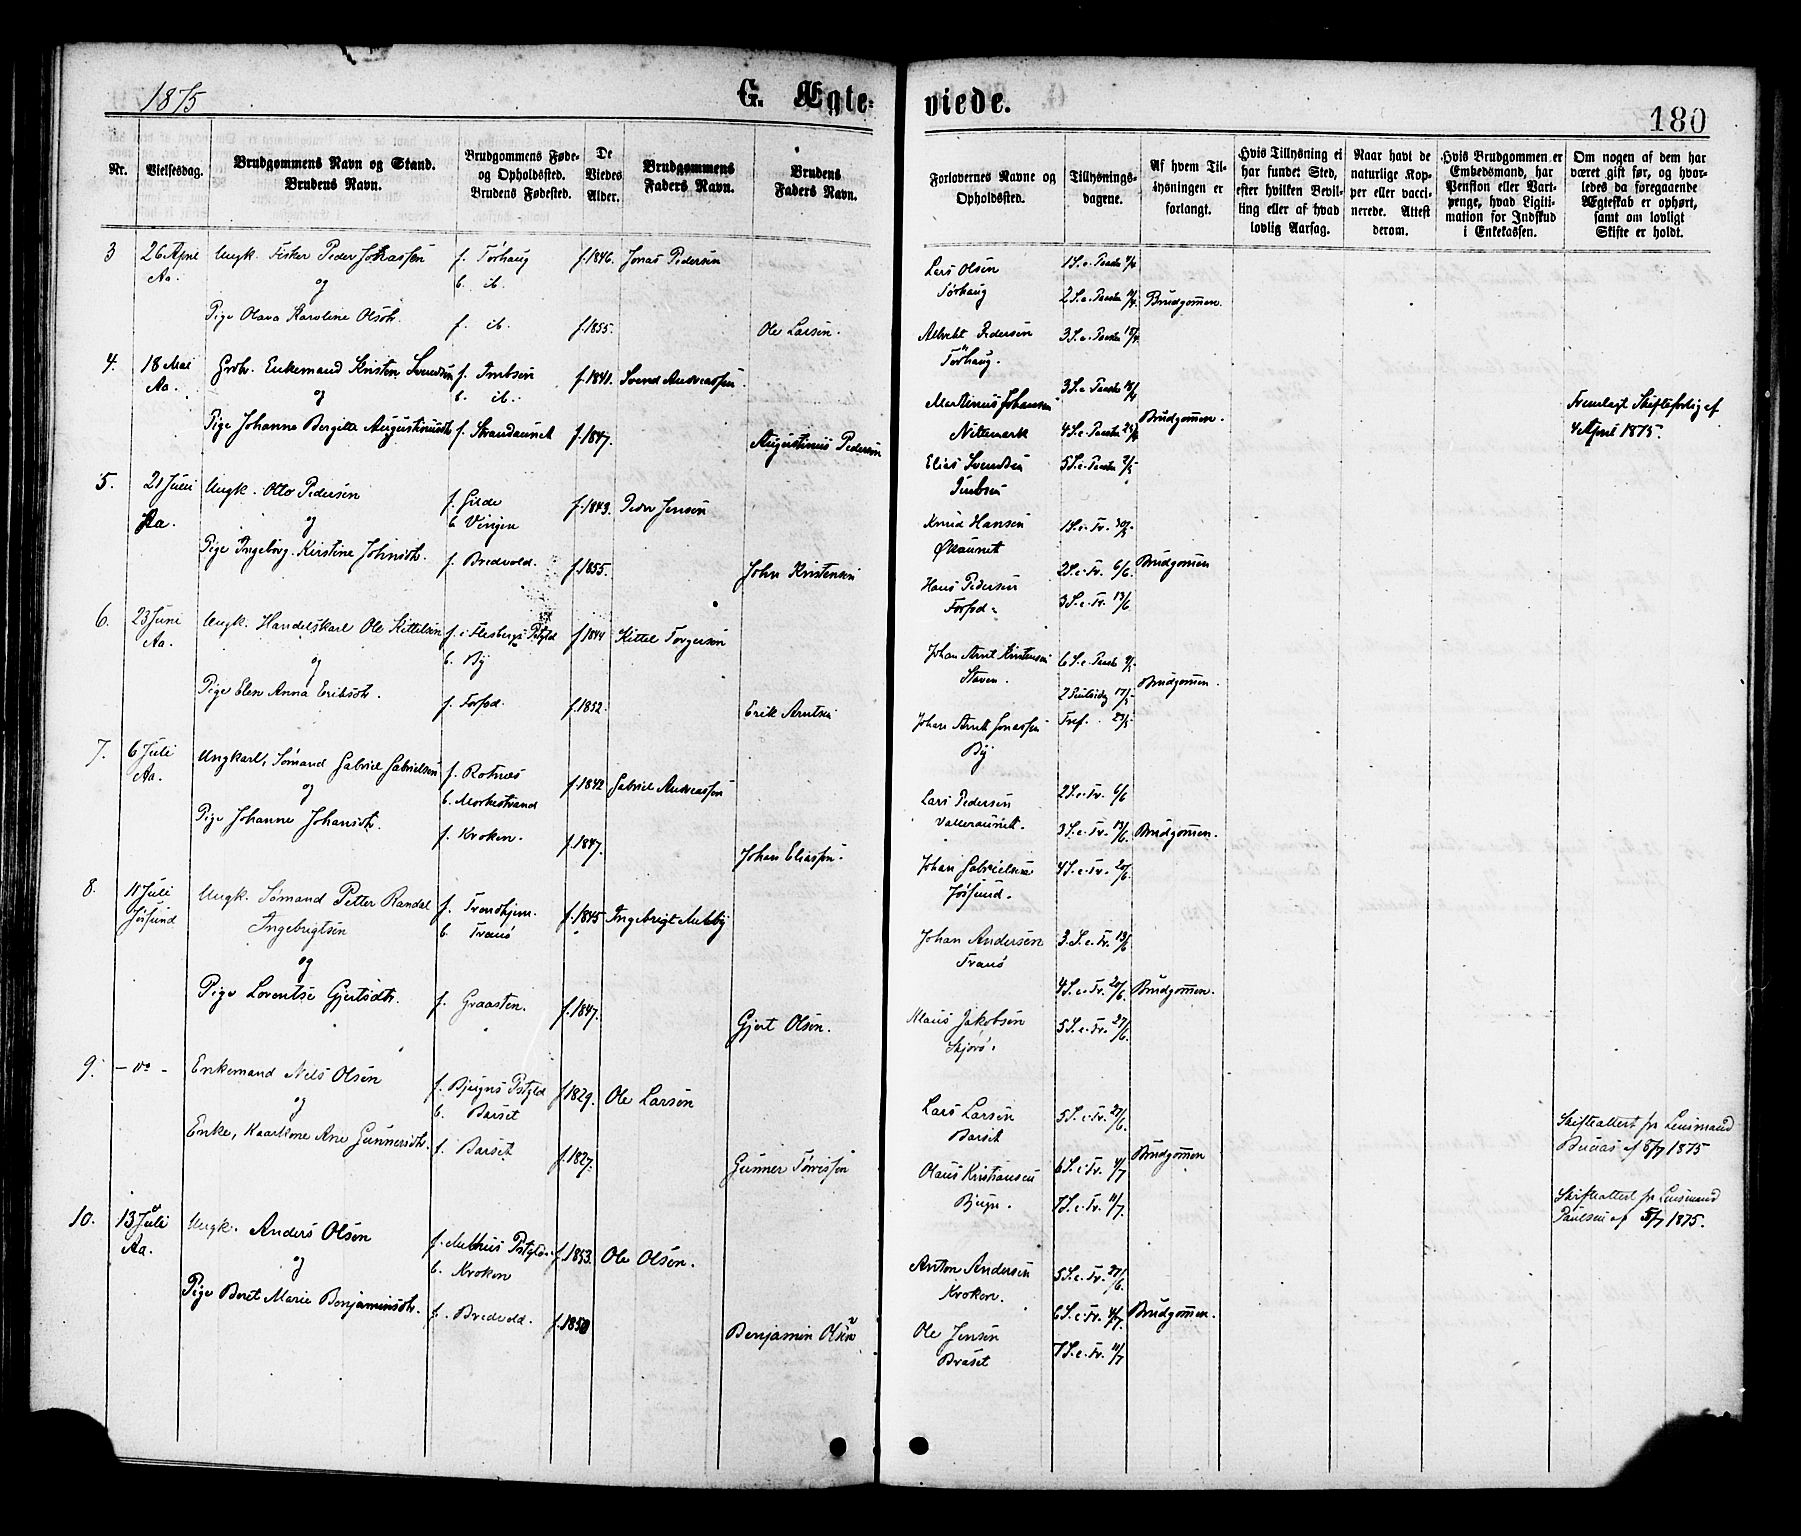 1875
G. Ægte-
viede.
180
Nr.
Vielsesdag.
Brudgommens Navn og Stand.
Brudens Navn.
Brudgommens Føde-
og Opholdssted.
Brudens Fødested.
De
Viedes
Alder.
Brudgommens
Faders Navn.
Brudens
Faders Navn.
Forlovernes Navne og
Opholdssted.
Tillysnings-
dagene.
Af hvem Til-
lysningen er
forlangt.
Hvis Tillysning ei
har fundet Sted,
efter hvilken Bevil-
ling eller af hvad
lovlig Aarsag.
Naar havt de
naturlige Kop-
per eller vacci-
nerede. Attest
derom.
Hvis Brudgommen er
Embedsmand, har
Pension eller Vart-
penge, hvad Ligiti-
mation for Indskud
i Enkekassen.
Om nogen af dem har
været gift før, og hvor-
ledes da foregaaende
Ægteskab er ophørt,
samt om lovligt
Skifte er holdt.
3
26 April
Aa.
Ungk. Fisker Peder Johassen
og
Pige Olava Karoline Olsdt.
f. Tørhaug
b. ib.
f. ib.
f. 1846.
f. 1855.
Jonas Pedersen
Ole Larsen.
Lars Olsen
Tørhaug
Albrikt Pedersen
Tørhaug.
1 S. e. Paaske 4/4
2 S. e. Paaske 11/4
3 S. e. Paaske 18/4
Brudgommen.
4.
18 Mai
Aa.
Grbr. Enkemand Kristen Svendsen
og
Pige Johanna Bergitta Augustinusdt.
f.
b. ib.
f. Strandaunet
f. 1841.
f. 1847.
Svend Andreassen
Augustinus Pedersen
Martinus Johansen
Nitemark
Elias Svendsen
3 S. e. Paaske 18/4
4 S. e. Paaske 25/4
5 S. e. Paaske 2/5
Brudgommen.
Fremlagt Skifteforlig af
4 April 1875.
5.
21 Juni
Aa.
Ungk. Otto Pedersen
og
Pige Ingeborg Kirstine Johnsdt.
f. Gilde
b. Vingen
f. Bredvold.
f. 1849.
f. 1855.
Peder Jensen
John Kristensen
Knud Hansen
Øklaunet
Hans Pedersen
Forfod.
1 S. e. Tr. 30/5
2 S. e. Tr. 6/6.
3 S. e. Tr. 13/6
Brudgommen
6.
23 Juni
Aa.
Ungk. Handelskarl Ole Kittelsen
og
Pige Elen Anna Eriksdt.
f. i Flesbergs Pstgld
b. By
f. Forfod.
f. 1844
f. 1852.
Kittel Torgersen
Erik Arntsen
Johan Arnt Kristensen
Staven.
Johan Arnt Jonassen
By
6 S. e. Paaske 9/5
2 Pintsedag 17/5
Tref. 23/5
Brudgommen.
7.
6 Juli
Aa.
Ungkarl, Sømand Gabriel Gabrielsen
og
Pige Johanne Johansdt.
f. Rotnes
b. Morkestrand
f. Kroken.
f. 1842
f. 1847.
Gabriel Andreassen
Johan Eliassen.
Lars Pedersen
Valleraunet.
Johan Gabrielsen
Jøssund.
2 S. e. Tr. 6/6
3 S. e. Tr. 13/6.
4 S. e. Tr. 20/6
Brudgommen.
8.
11 Juli
Jøssund
Ungk. Sømand Petter Randal
Ingebrigtsen
og
Pige Lorentse Gjertsdt.
f. Trondhjem.
b. Tranø
f. Graasten.
f. 1845
f. 1847.
Ingebrigt Melby
Gjert Olsen.
Johan Andersen
Tranø
Klaus Jakobsen
Skjørø.
3 S. e. Tr. 13/6
4 S. e. Tr. 20/6.
5 S. e. Tr. 27/6.
Brudgommen.
9.
- do -
Enkemand Nils Olsen
og
Enke, Kaarkone Ane Gunnersdt.
f. Bjugns Pstgld
b. Barset
f. Barset
f. 1829.
f. 1827.
Ole Larsen
Gunner Tørrissen
Lars Larsen
Barset
Olaus Kristiansen
Bjugn.
5 S. e. Tr. 27/6.
6 S. e. Tr. 4/7
7 S. e. Tr. 11/7.
Brudgommen
Skifteattest fr Lensmand
af 5/7 1875
Skifteattest fr Lensmand
Paulsen af 5/7 1875.
10.
13 Juli
Aa.
Ungk. Anders Olsen
og
Pige Beret Marie Benjaminsdt.
f. Melhus Pstgld.
b. Kroken
f. Bredvold.
f. 1853.
f. 1850
Ole Olsen.
Benjamin Olsen
Anton Andersen
Kroken.
Ole Jensen
Braset
5 S. e. Tr. 27/6.
6 S. e. Tr. 4/7
7 S. e. Tr. 11/7
Brudgommen.